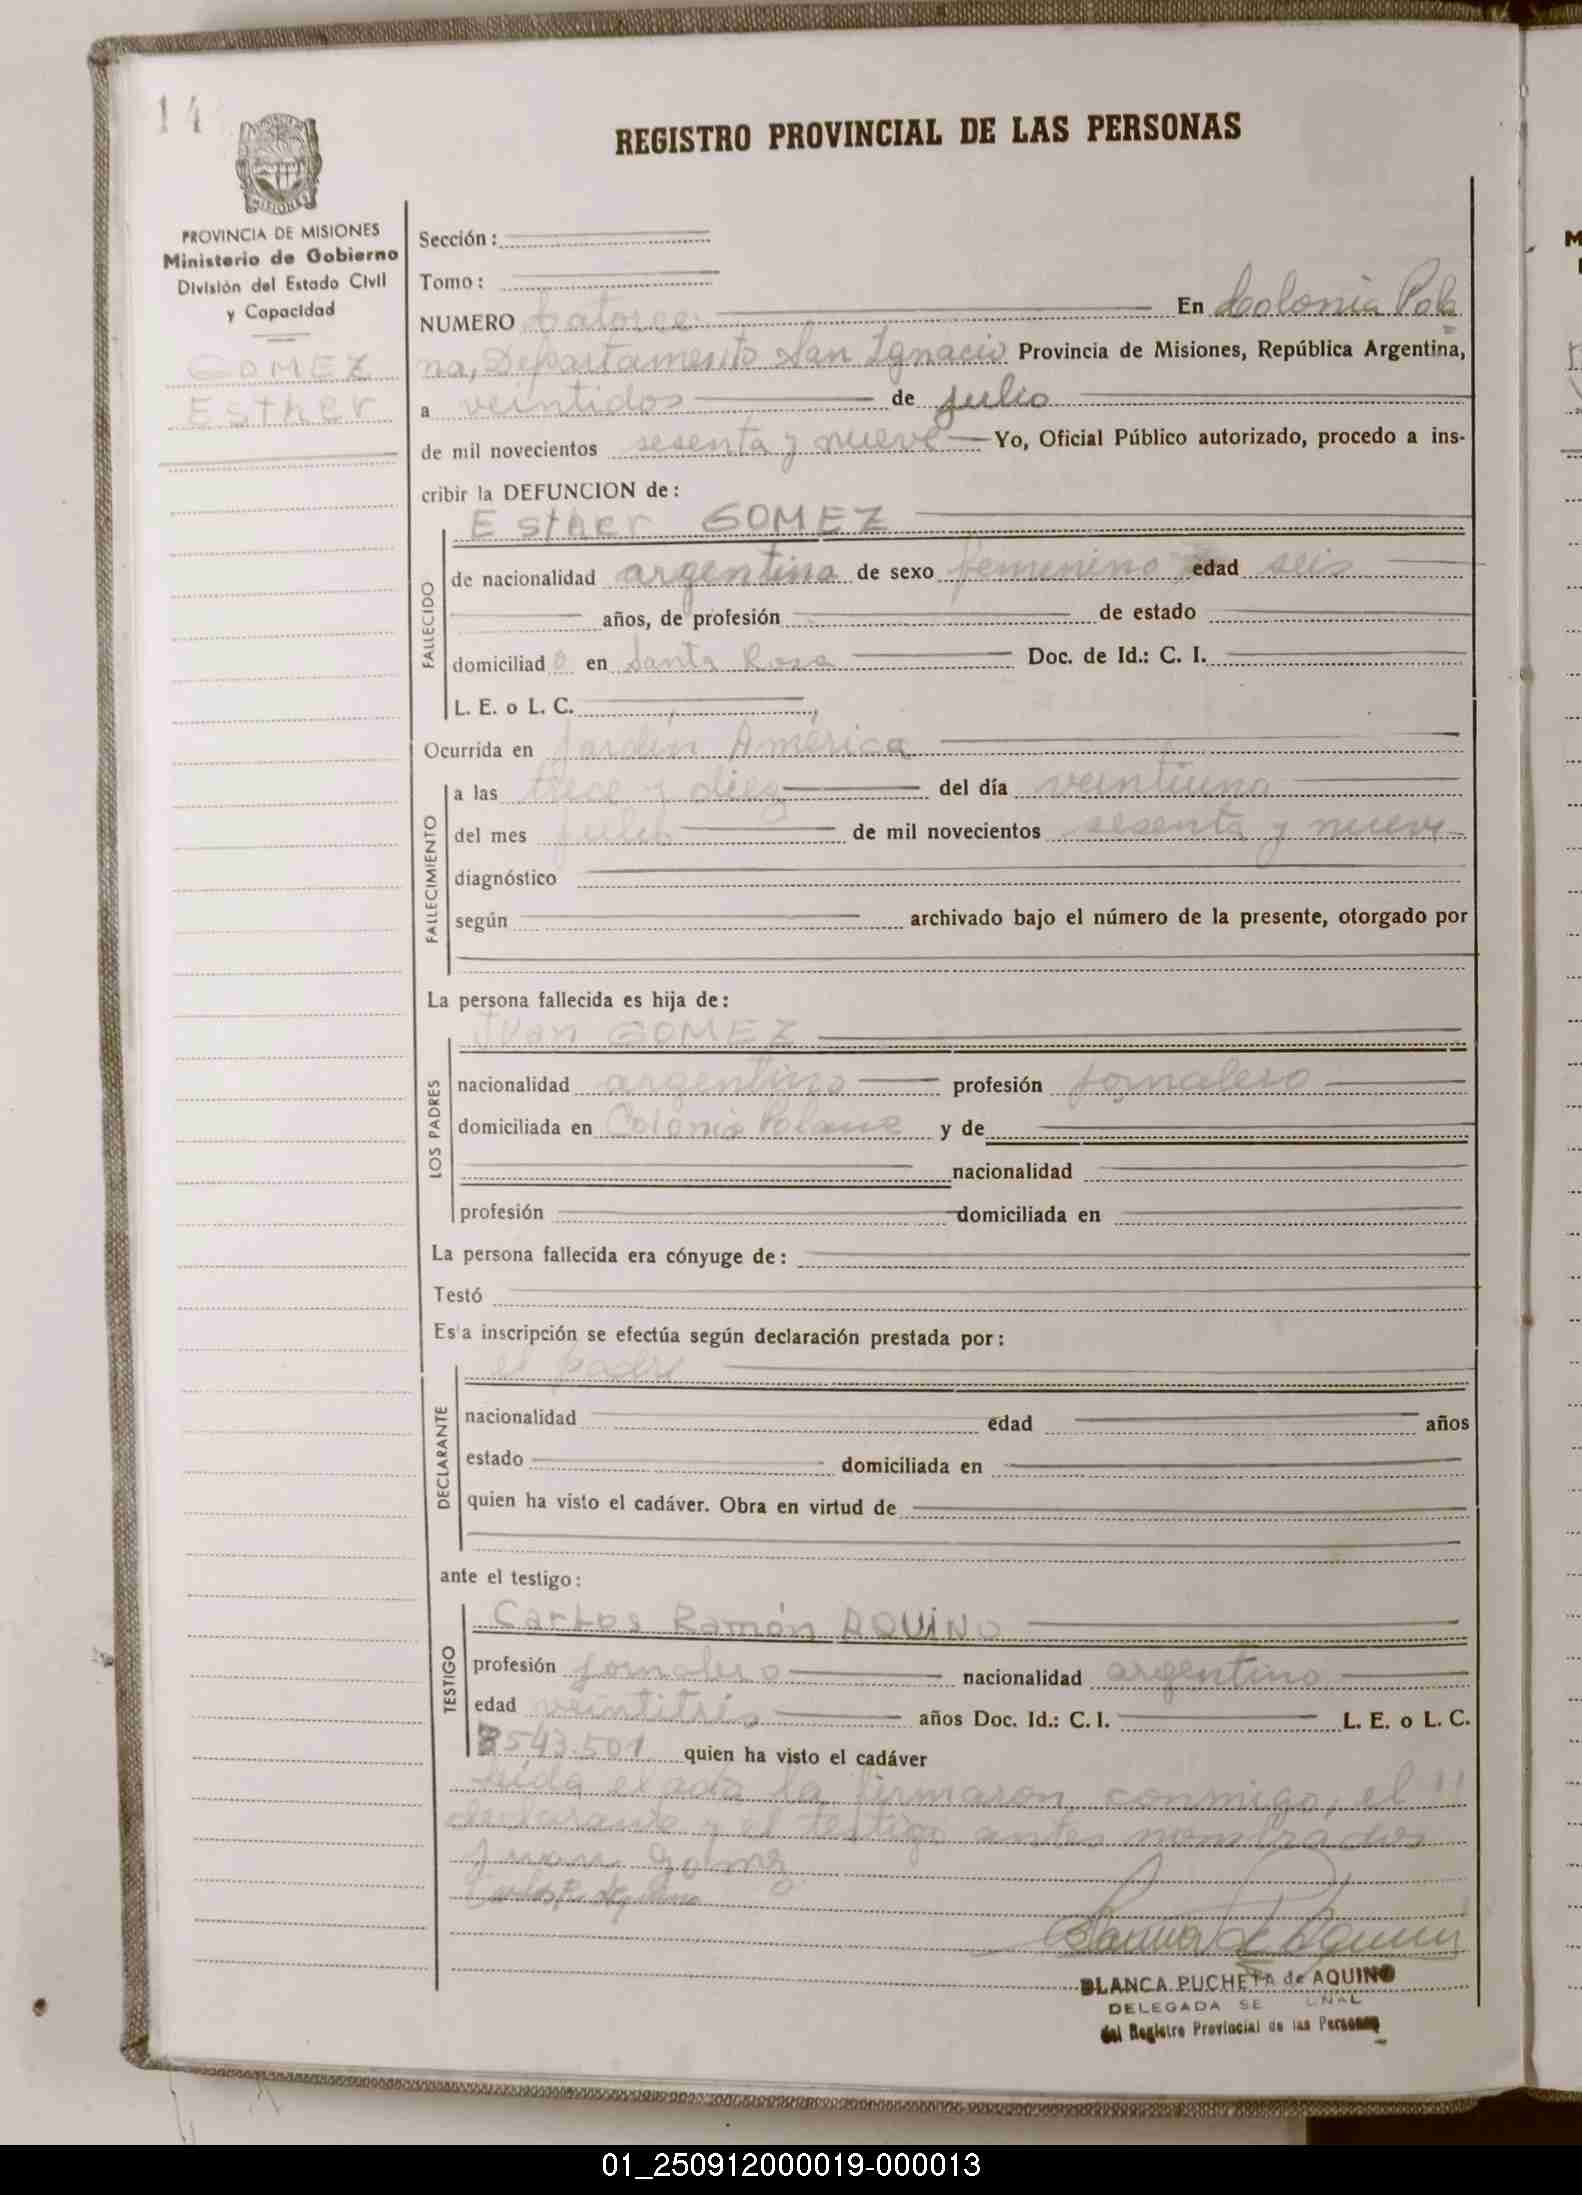 14
REGISTRO PROVINCIAL DE LAS PERSONAS
MISIONES
PROVINCIA DE MISIONES
Ministerio de Gobierno
División del Estado Civil
y Capacidad
GOMEZ
Esther
Sección:
Tomo:
NUMERO Catorce En Colonia Pola
na, Departamento San Ignacio Provincia de Misiones, República Argentina,
a veintidos de julio
de mil novecientos sesenta y nueve Yo, Oficial Público autorizado, procedo a ins-
cribir la DEFUNCION de:
Esther GOMEZ
FALLECIDO
de nacionalidad argentina de sexo femenino edad seis
años, de profesión de estado
domiciliado en Santa Rosa Doc. de Id.: C. I.
L. E. o L. C.
Ocurrida en Jardín América
FALLECIMIENTO
a las trece y diez del día veintiuno
del mes julio de mil novecientos sesenta y nueve
diagnóstico
según archivado bajo el número de la presente, otorgado por
La persona fallecida es hija de:
Juan GOMEZ
LOS PADRES
nacionalidad argentino profesión jornalero
domiciliada en Colonia Polana y de
nacionalidad
profesión domiciliada en
La persona fallecida era cónyuge de:
Testó
Esta inscripción se efectúa según declaración prestada por:
el padre
DECLARANTE
nacionalidad edad años
estado domiciliada en
quien ha visto el cadáver. Obra en virtud de
ante el testigo:
Carlos Ramón AQUINO
TESTIGO
profesión jornalero nacionalidad argentino
edad veintitrés años Doc. Id.: C. I. L. E. o L. C.
543.501 quien ha visto el cadáver
leída el acta la firmaron conmigo, el
declarante y el testigo antes nombrados
Juan Gomez
Aquino
BLANCA PUCHETA de AQUINO
DELEGADA
del Registro Provincial de las Personas
01_250912000019-000013